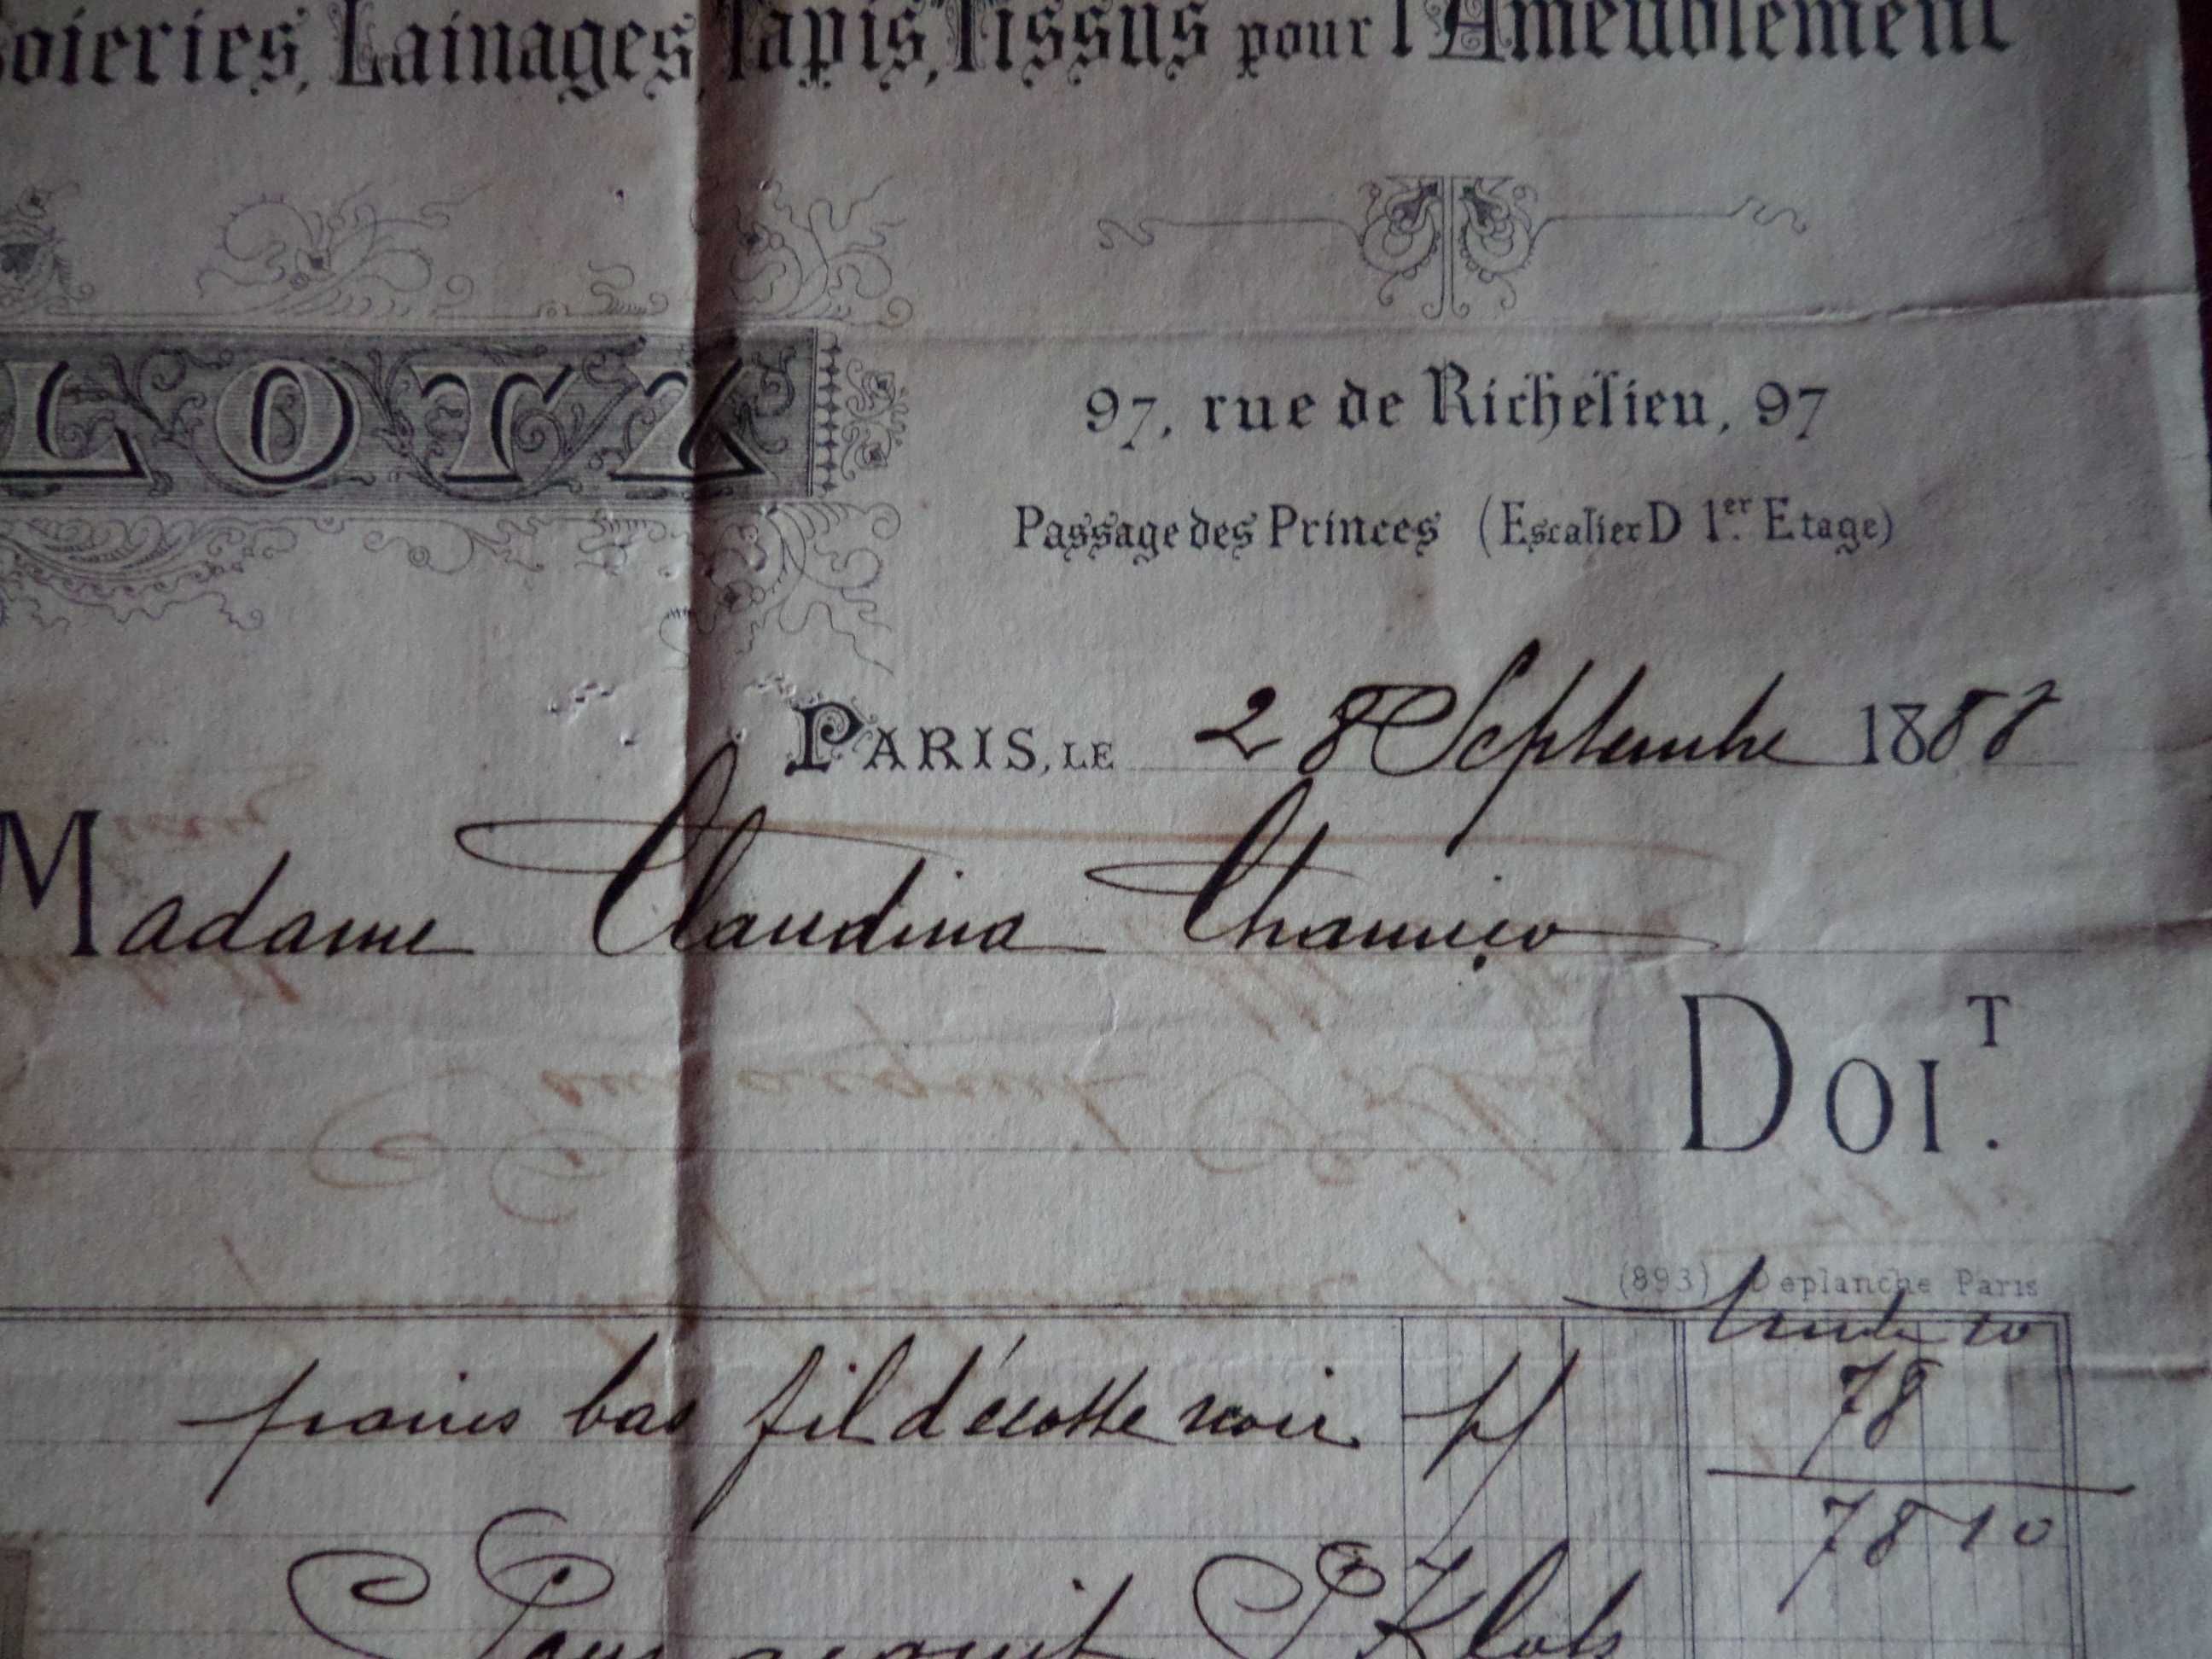 oieries, Lainages, Tapis, Tissus pour l'Ameublement
LOTZ
97, rue de Richelieu, 97
Passage des Princes (Escalier D 1er Etage)
PARIS, LE 28 Septembre 1888
Madame Claudina Chamiço
DOIT.
(893) Deplanche Paris
timbre 10
paires bas fil d'écosse noir 78
78 10
Pour acquit Klotz